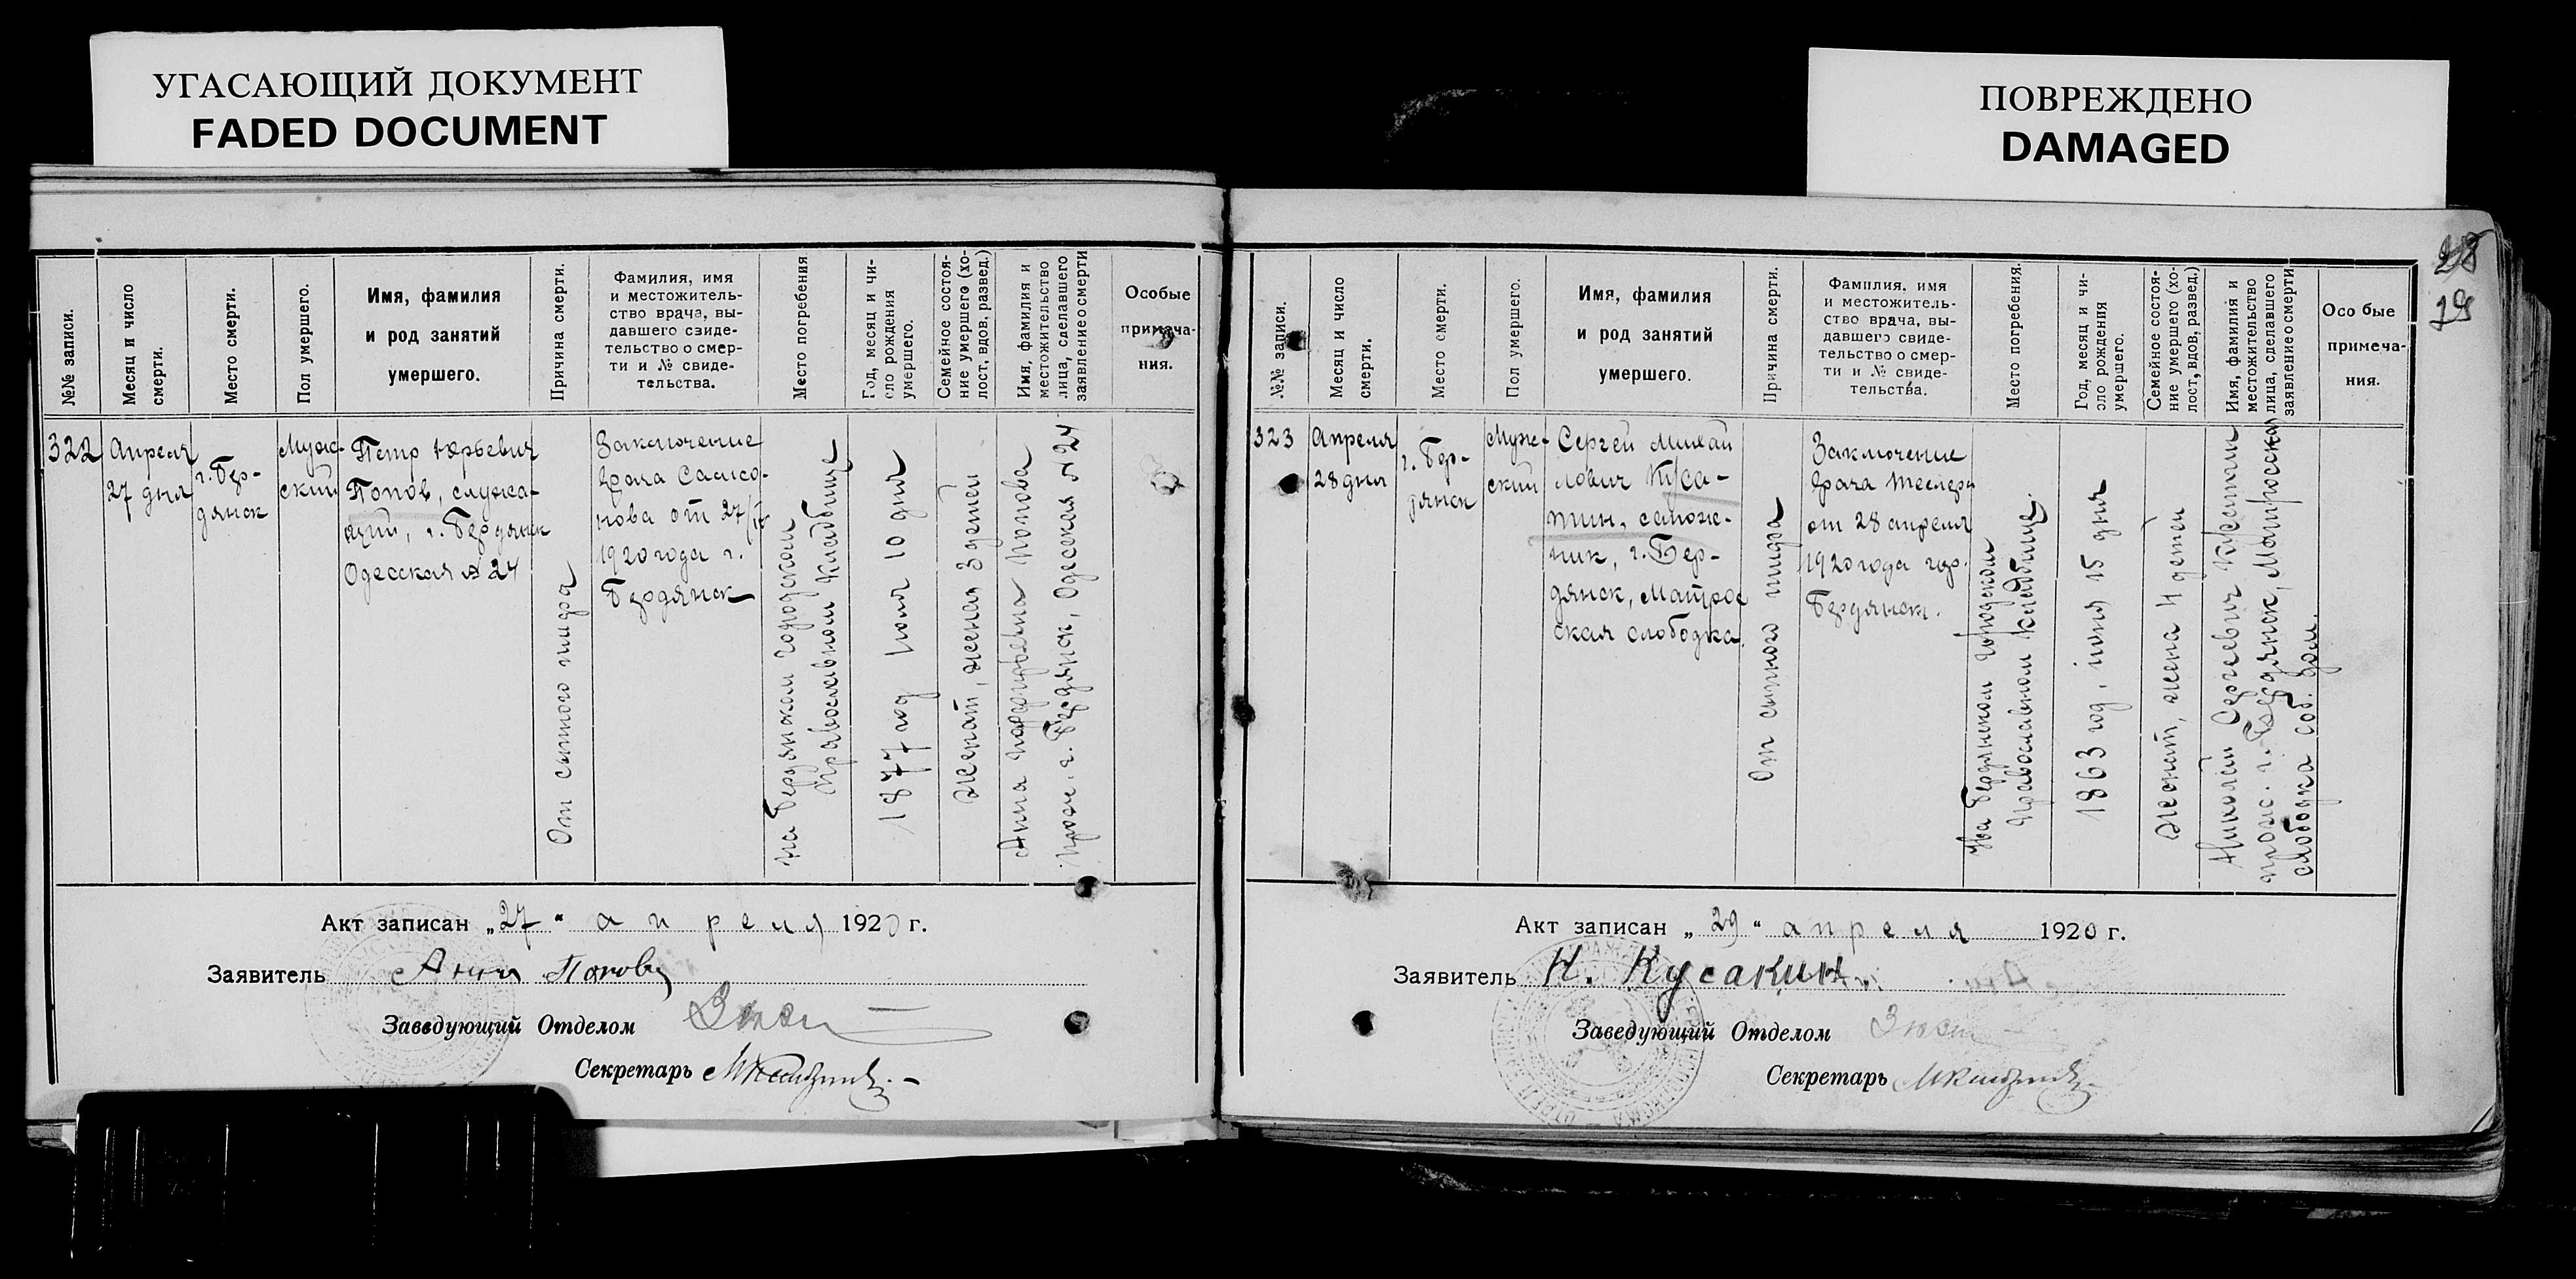 УГАСАЮЩИЙ ДОКУМЕНТ
FADED DOCUMENT
ПОВРЕЖДЕНО
DAMAGED
№№ записи.
Месяц и число
смерти.
Место смерти.
Пол умершего.
Имя, фамилия
и род занятий
умершего.
Причина смерти.
Фамилия, имя
и местожитель-
ство врача, вы-
давшего свиде-
тельство о смер-
ти и № свиде-
тельства.
Место погребения
Год, месяц и чи-
сло рождения
умершего.
Семейное состоя-
ние умершего (хо-
лост, вдов, развед.)
Имя, фамилия и
местожительство
лица, сделавшего
заявление о смерти
Особые
примеча-
ния.
322
Апреля
27 дня
г. Бер-
дянск
Муж-
ский
Петр Юрьевич
Попов, служа-
щий, г. Бердянск
Одесская № 24
От сыпного тифа
Заключение
врача Самсо-
нова от 27/IV
1920 года г.
Бердянск
на Бердянском городском
православном кладбище
1877 год июля 10 дня
Женат, жена 3 детей
Анна Попова
прож. г. Бердянск, Одесская № 24
Акт записан „27“ апреля 1920 г.
Заявитель Анна Попова
Заведующий Отделом
Секретарь
28
29
№№ записи.
Месяц и число
смерти.
Место смерти.
Пол умершего.
Имя, фамилия
и род занятий
умершего.
Причина смерти.
Фамилия, имя
и местожитель-
ство врача, вы-
давшего свиде-
тельство о смер-
ти и № свиде-
тельства.
Место погребения.
Год, месяц и чи-
сло рождения
умершего.
Семейное состоя-
ние умершего (хо-
лост, вдов, развед.)
Имя, фамилия и
местожительство
лица, сделавшего
заявление о смерти
Особые
примеча-
ния.
323
Апреля
28 дня
г. Бер-
дянск
Муж-
ский
Сергей Михай
лович Куса-
кин, сапож-
ник, г. Бер-
дянск, Матрос
ская слободка.
От сыпного тифа
Заключение
врача
от 28 апреля
1920 года гор.
Бердянск.
На Бердянском городском
православном кладбище.
1863 год, июня 15 дня
Женат, жена 4 детей
Николай Сергеевич Кусакин
прож. г. Бердянск, Матросская
слободка соб. дом.
Акт записан „29“ апреля 1920 г.
Заявитель Н. Кусакин
Заведующий Отделом
Секретарь